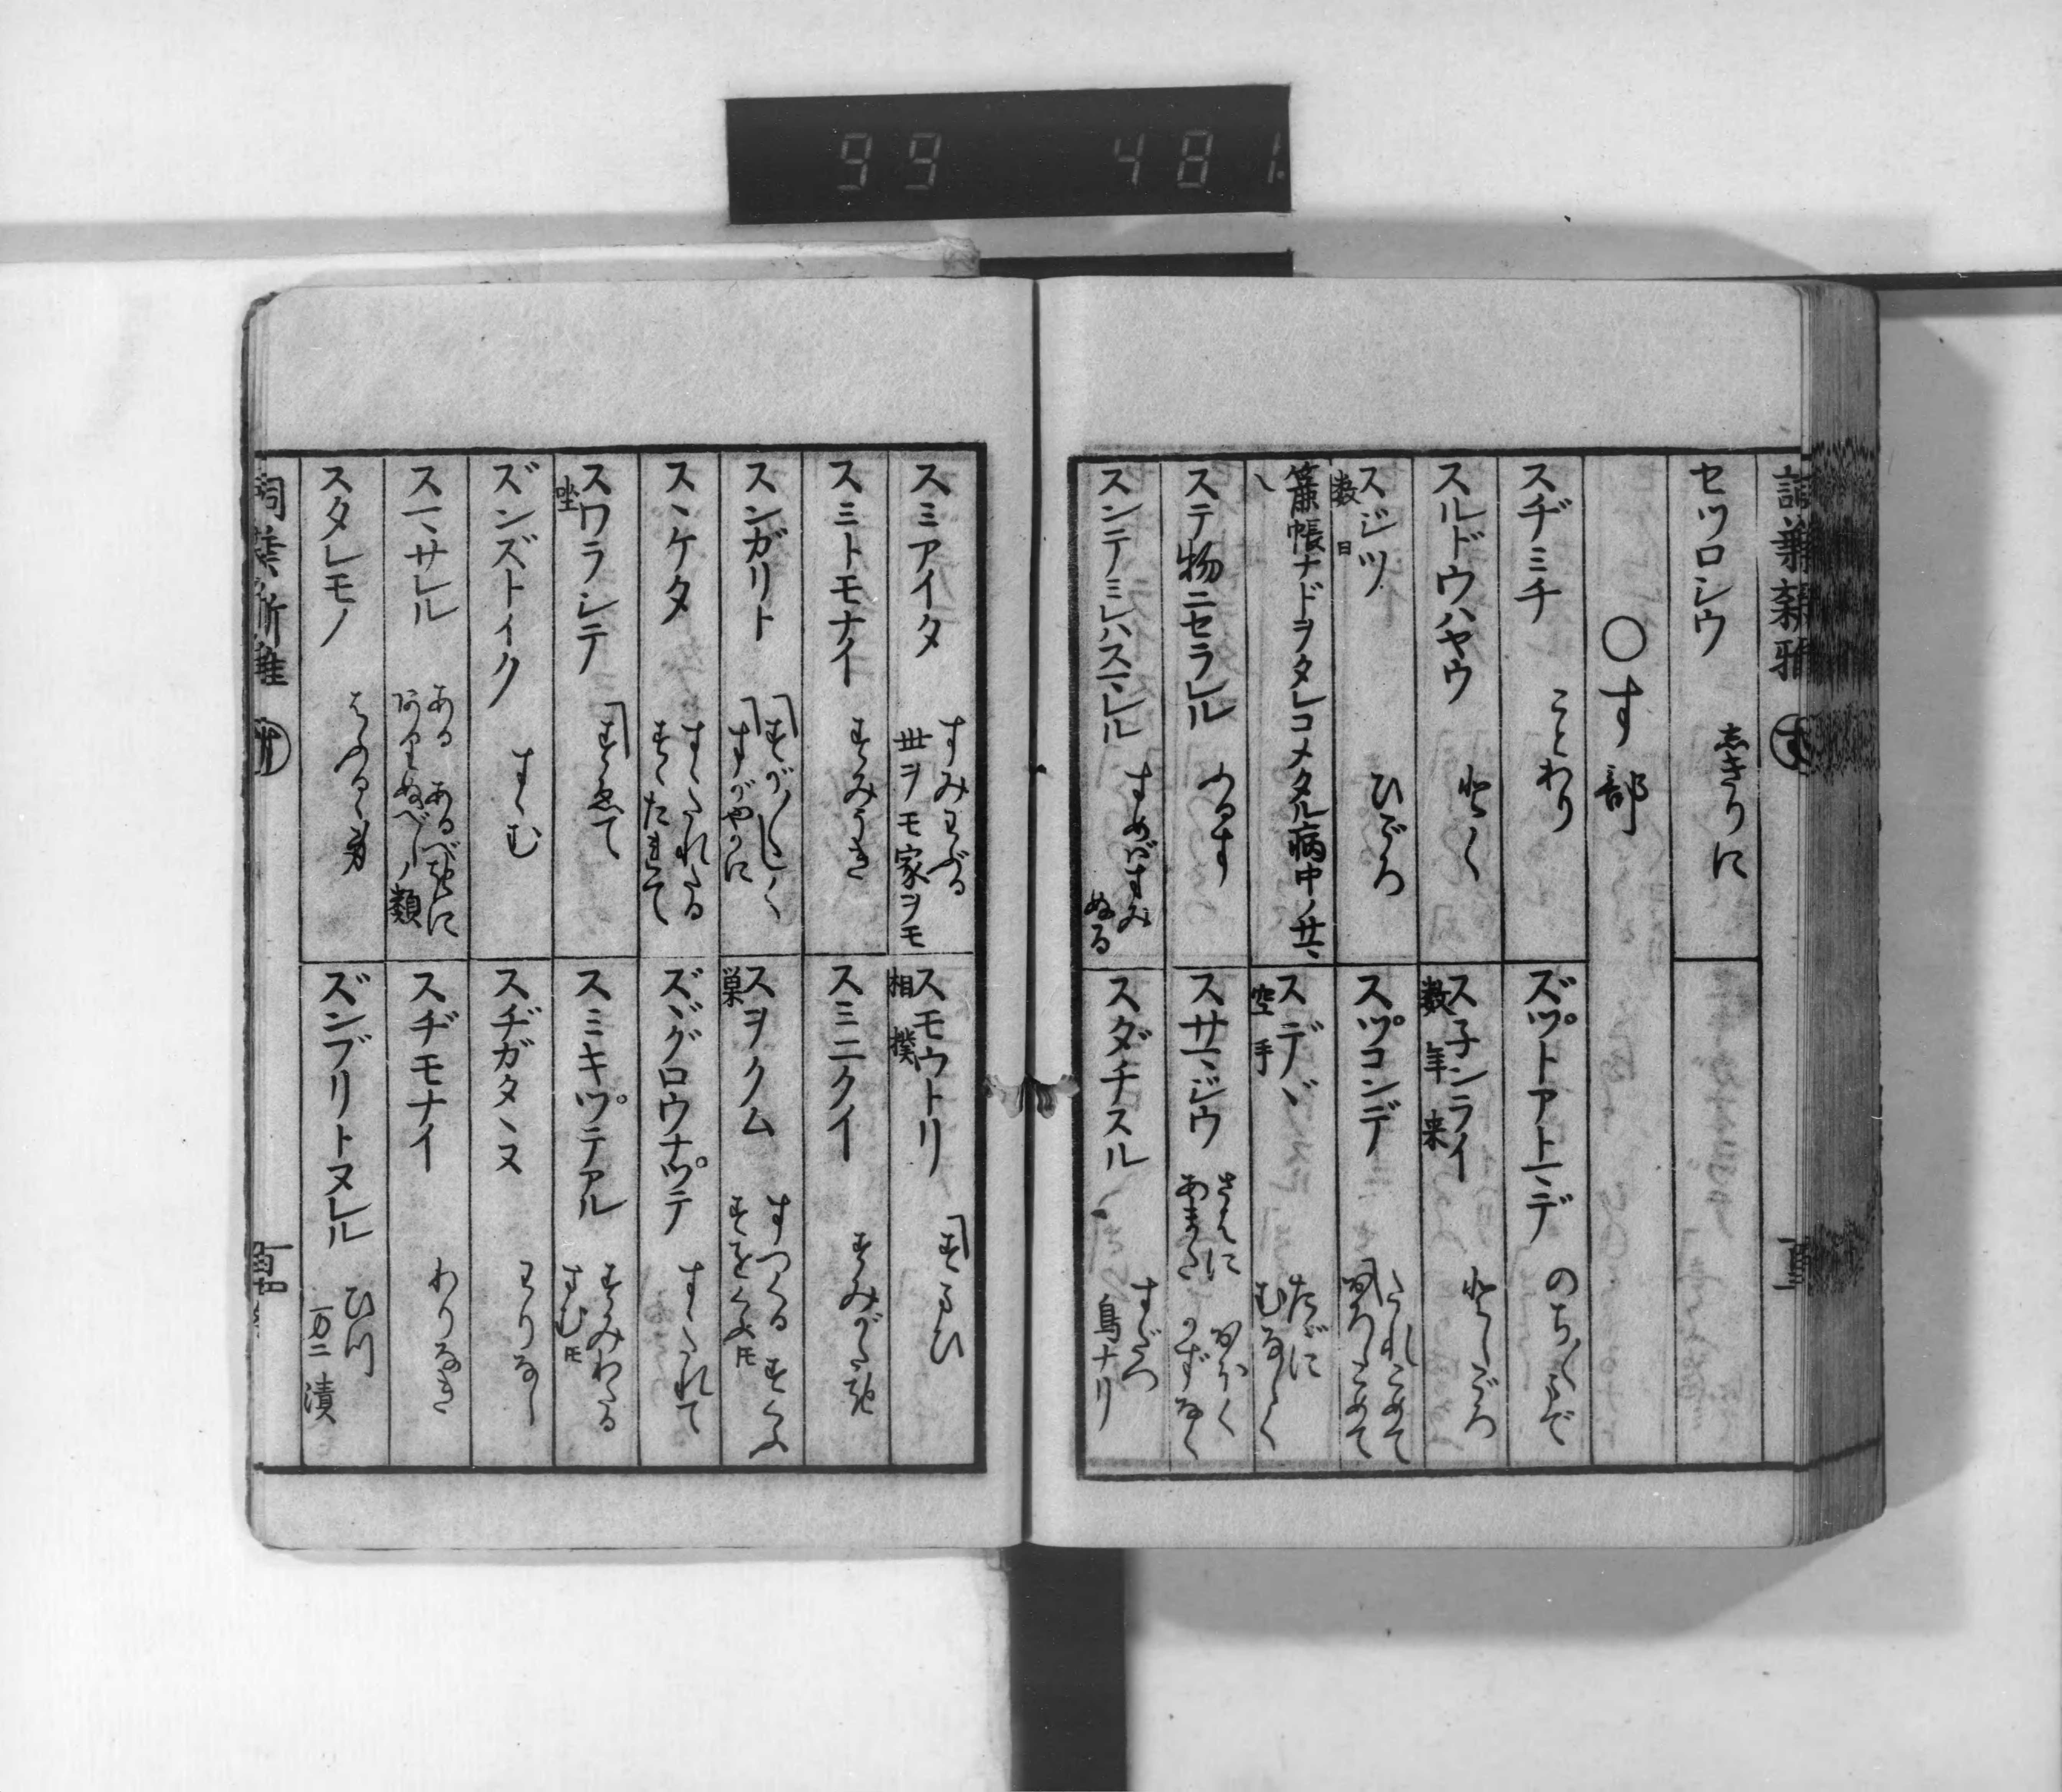 99 481.
セツロシウ しきりに
〇す部
スヂミチ ことわり
ズツトアトマデ のち〱まで
スルドウハヤウ とく
スネンライ としごろ
数年来
スジツ ひごろ
数日
スツコンデ たれこめて
簾帳ナドヲタレコメタル病中ノ廿
スデヽ たゞに
空手 むなしく
ステ物ニセラレル
スサマジウ さらに
あまた かずなく
スンテミレハスマレル すめばすみ
ぬる
スダチスル すだつ
鳥ナリ
スミアイタ すみわぶる
世ヲモ家ヲモ
スモウトリ すまひ
相撲
スミトモナイ すみうき
スミニクイ すみがたき
スンガリト すが〱しく
すがやかに
スヲクム すつくる すくふ
巣 すをくふ トモ
スヽケタ すゝけたる
すゝたれて
ズヾグロウナツテ すゝたれて
スワラシテ すゑて
坐
スミキツテアル すみわたる
すむ トモ
ズンズトイク すゝむ
スヂガタヽヌ わりなし
スマサレル ある あるべきに
ありぬべしノ類
スヂモナイ わりなき
スタレモノ
ズンブリトヌレル ひつ
漬